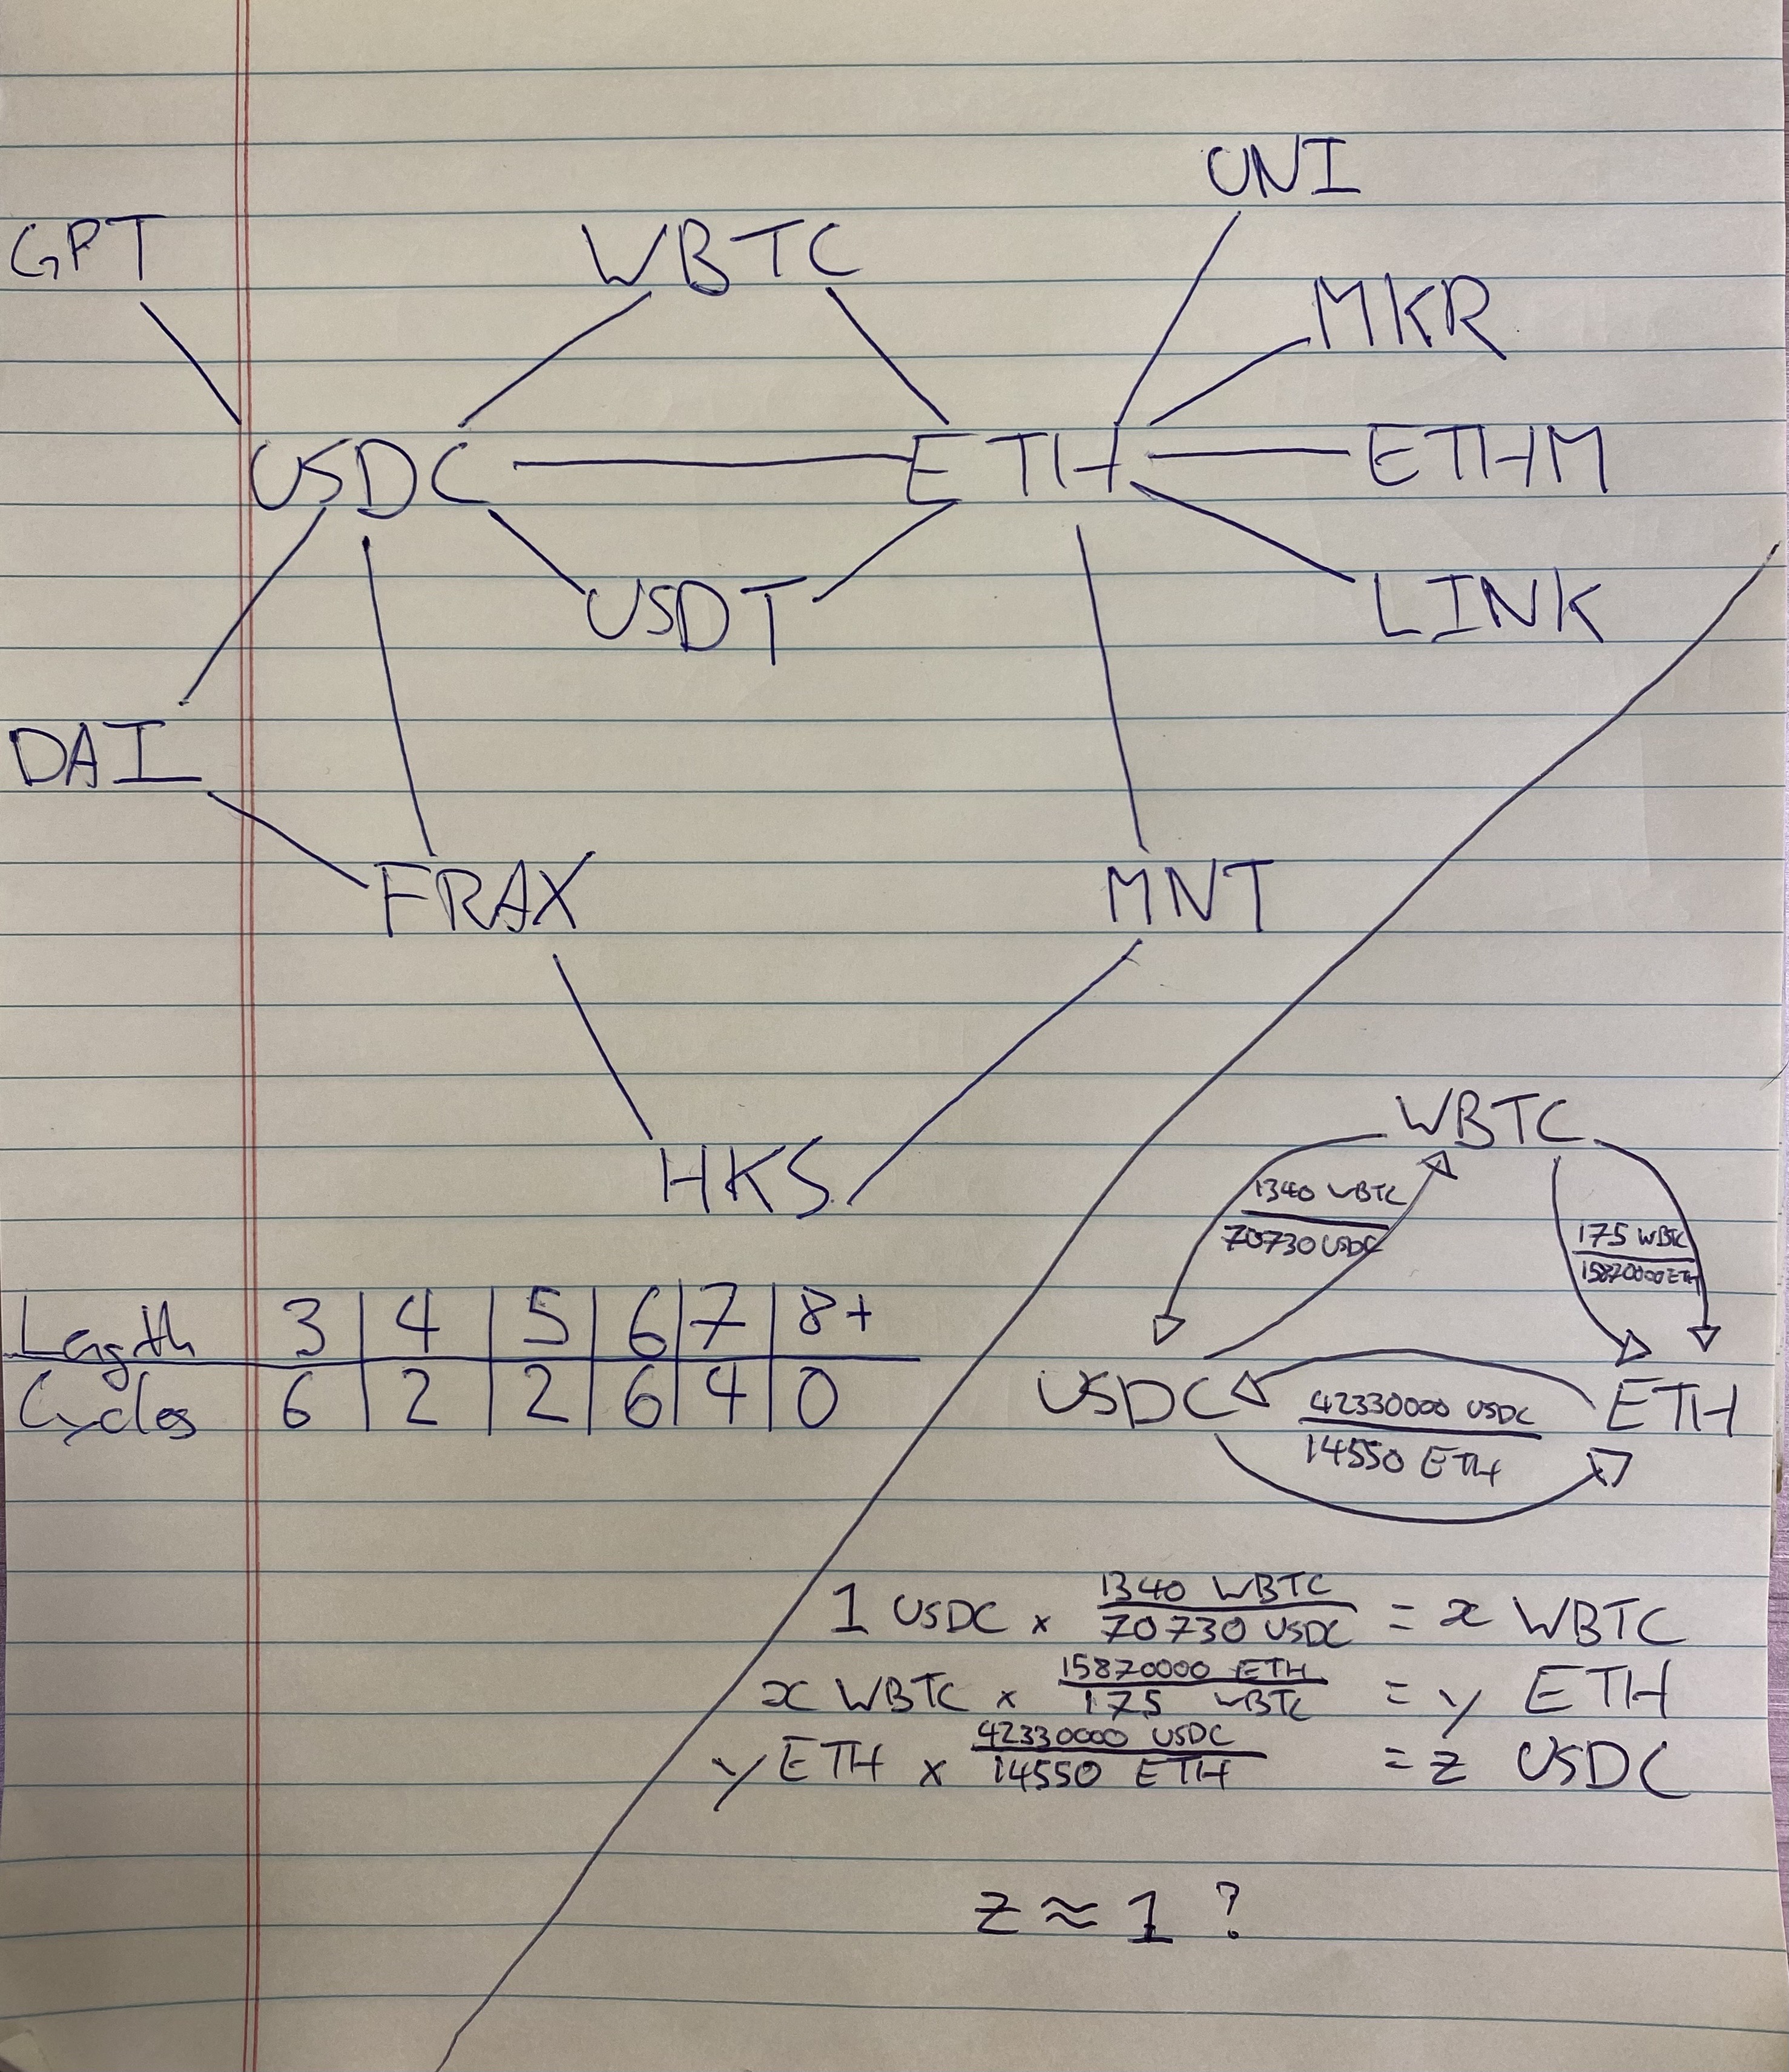 UNI
GPT
WBTC
MKR
USDC
ETH
ETHM
USDT
LINK
DAI
FRAX
MNT
HKS
Length 3 4 5 6 7 8+
Cycles 6 2 2 6 4 0
WBTC
1340 WBTC
70730 USDC
175 WBTC
15870000 ETH
USDC
ETH
42330000 USDC
14550 ETH
1 USDC × 1340 WBTC / 70730 USDC = x WBTC
x WBTC × 15870000 ETH / 175 WBTC = y ETH
y ETH × 42330000 USDC / 14550 ETH = z USDC
z ≈ 1 ?